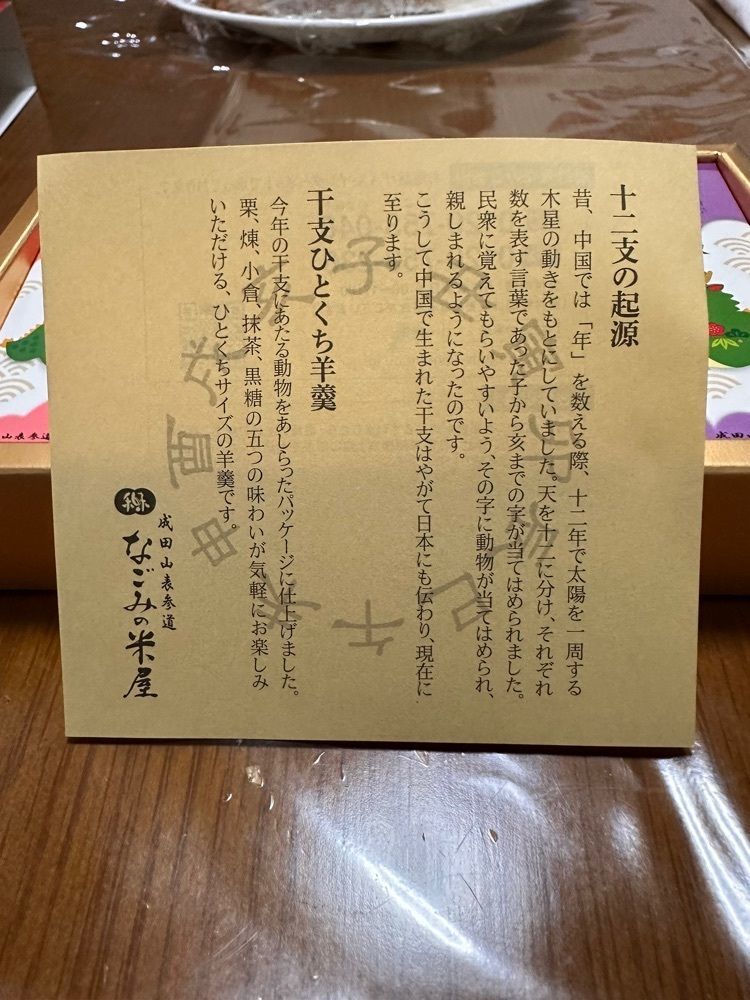 十二支の起源
昔、中国では「年」を数える際、十二年で太陽を一周する
木星の動きをもとにしていました。天を十二に分け、それぞれ
数を表す言葉であった子から亥までの字が当てはめられました。
民衆に覚えてもらいやすいよう、その字に動物が当てはめられ、
親しまれるようになったのです。
こうして中国で生まれた干支はやがて日本にも伝わり、現在に
至ります。
干支ひとくち羊羹
今年の干支にあたる動物をあしらったパッケージに仕上げました。
栗、煉、小倉、抹茶、黒糖の五つの味わいが気軽にお楽しみ
いただける、ひとくちサイズの羊羹です。
成田山表参道
なごみの米屋
子
午
未
申
酉
戌
山表参道
成田